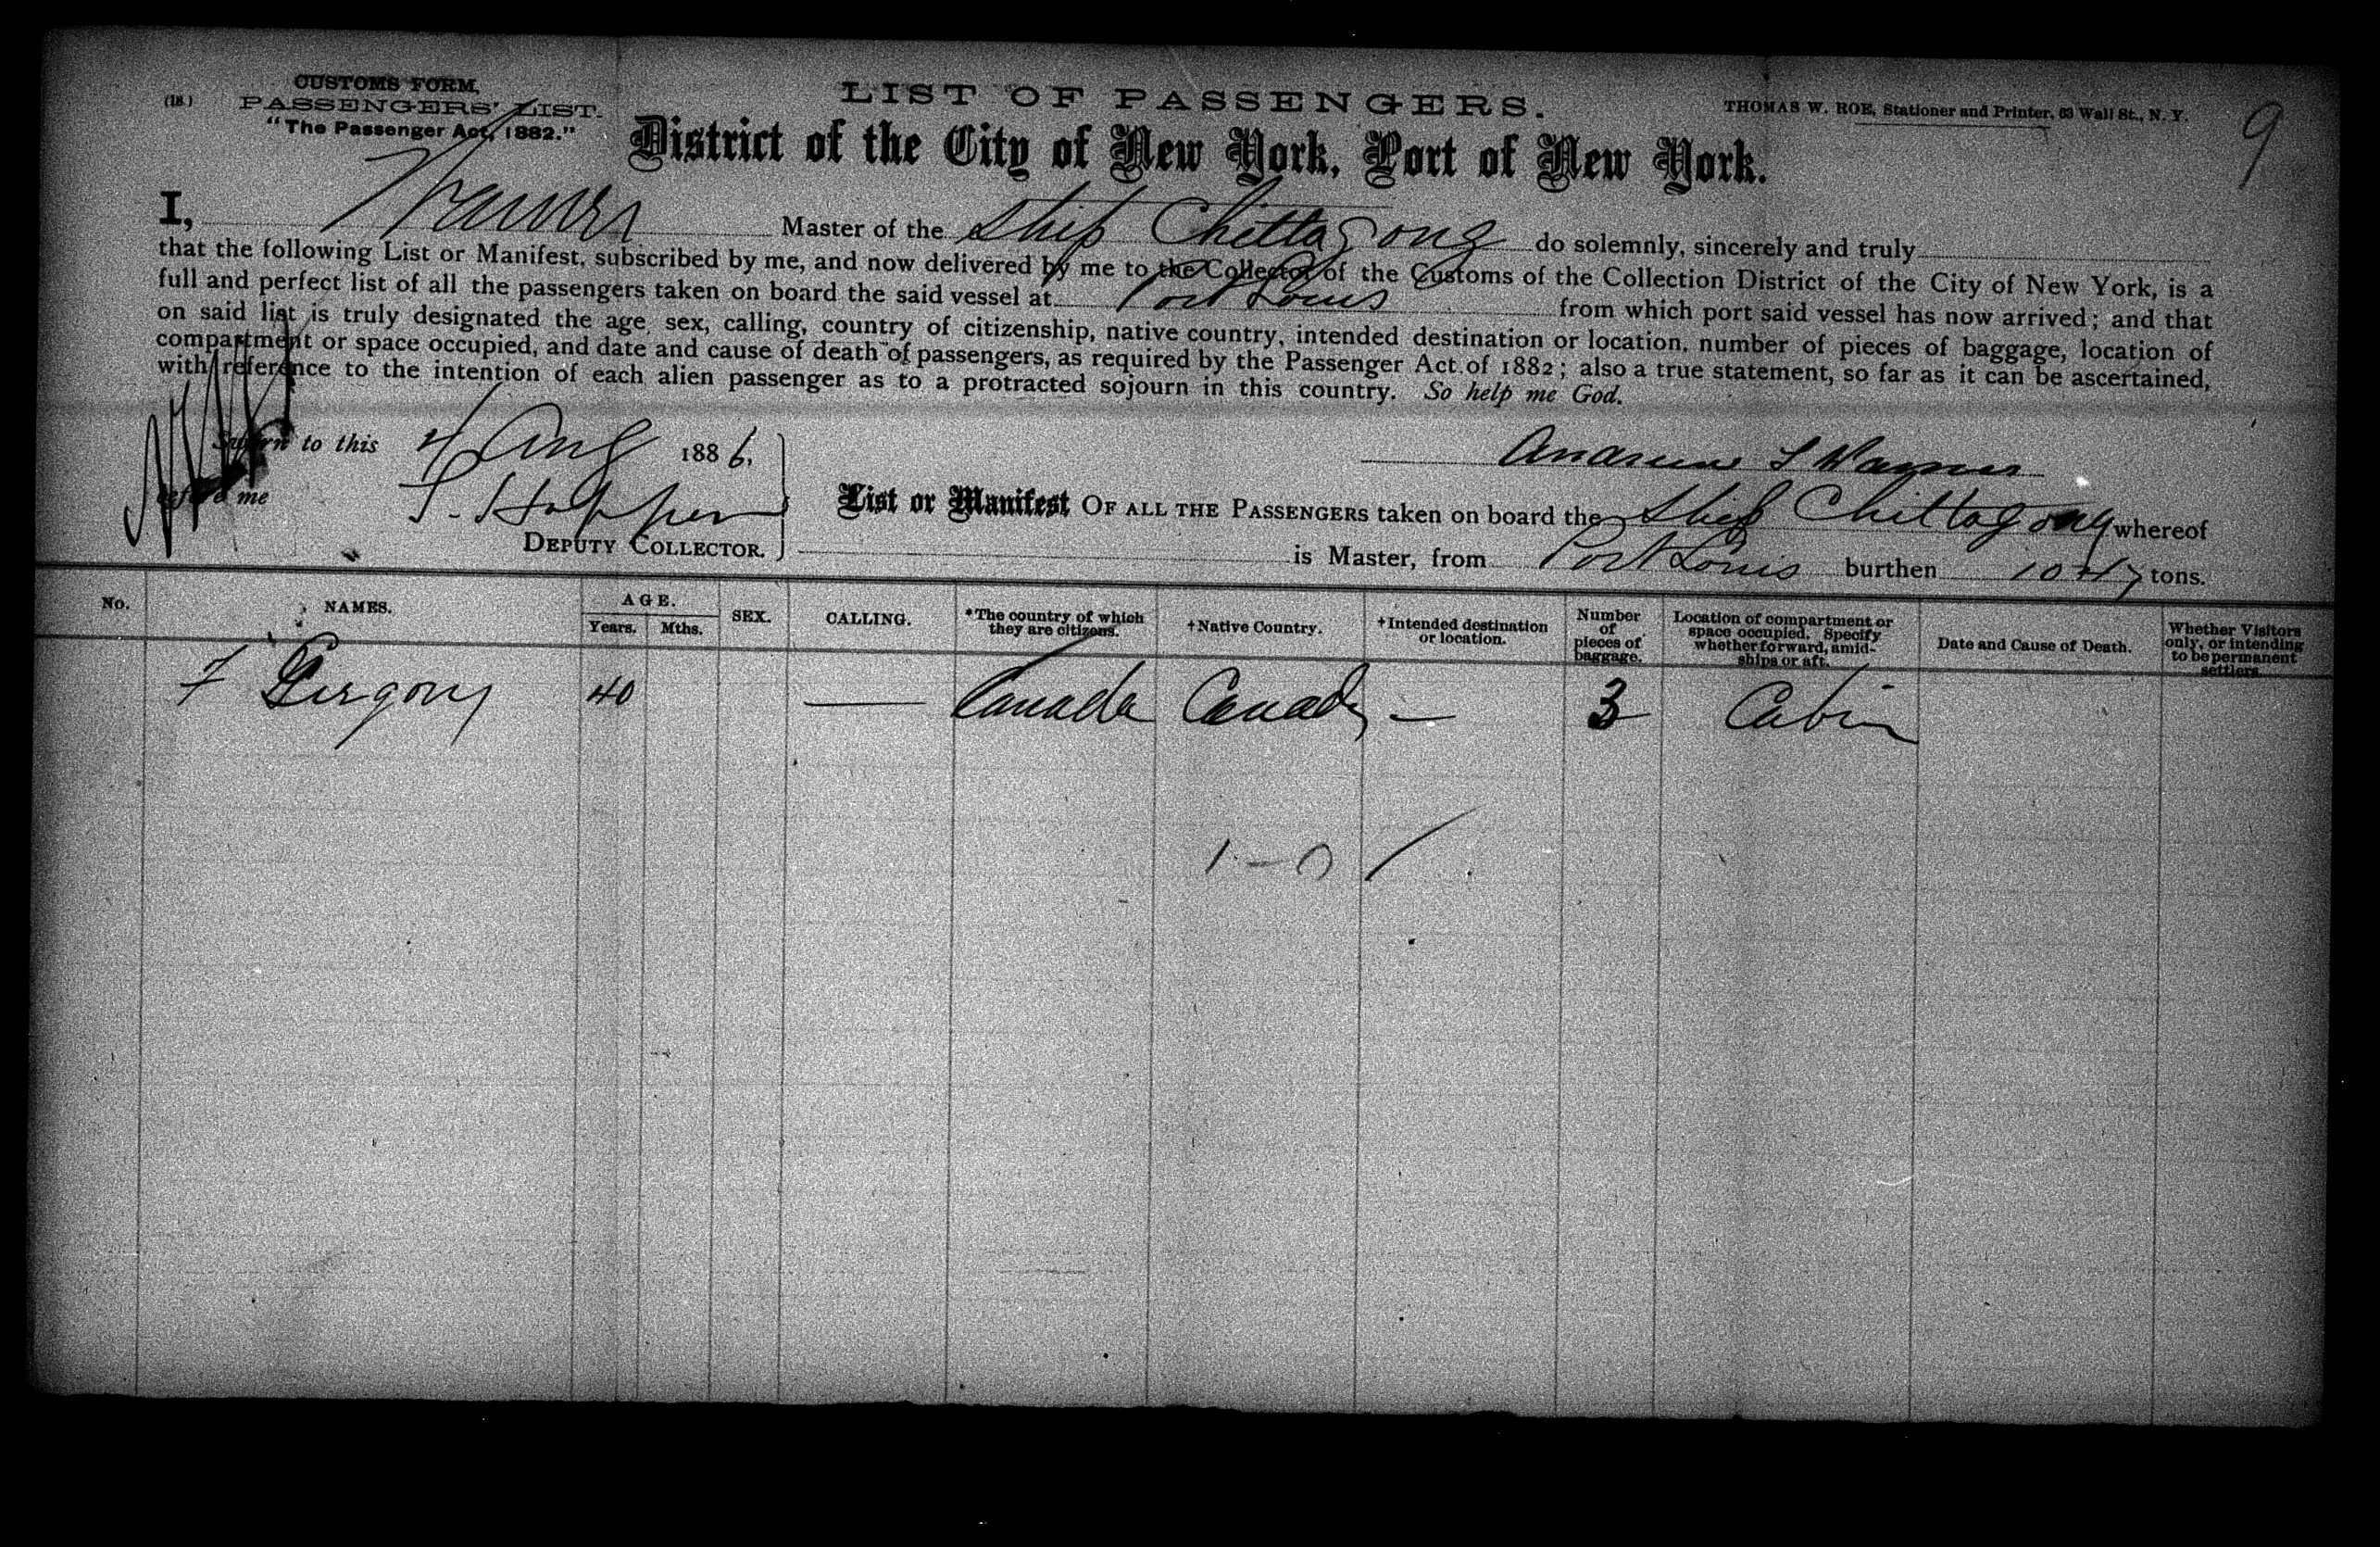 (18)
CUSTOMS FORM,
PASSENGERS' LIST.
"The Passenger Act, 1882."
LIST OF PASSENGERS.
THOMAS W. ROE, Stationer and Printer, 63 Wall St., N. Y.
9
District of the City of New York, Port of New York.
I, Master of the Ship Chittagong do solemnly, sincerely and truly
that the following List or Manifest, subscribed by me, and now delivered by me to the Collector of the Customs of the Collection District of the City of New York, is a
full and perfect list of all the passengers taken on board the said vessel at Port Louis from which port said vessel has now arrived; and that
on said list is truly designated the age, sex, calling, country of citizenship, native country, intended destination or location, number of pieces of baggage, location of
compartment or space occupied, and date and cause of death of passengers, as required by the Passenger Act of 1882; also a true statement, so far as it can be ascertained,
with reference to the intention of each alien passenger as to a protracted sojourn in this country. So help me God.
Sworn to this 4 Aug 1886,
before me
DEPUTY COLLECTOR.
List or Manifest OF ALL THE PASSENGERS taken on board the Ship Chittagong whereof
is Master, from Port Louis burthen tons.
No. NAMES. AGE. Years. Mths. SEX. CALLING. *The country of which they are citizens. +Native Country. +Intended destination or location. Number of pieces of baggage. Location of compartment or space occupied. Specify whether forward, amid-ships or aft. Date and Cause of Death. Whether Visitors only, or intending to be permanent settlers.
40 — Canada Canada — 3 Cabin
1-0 /